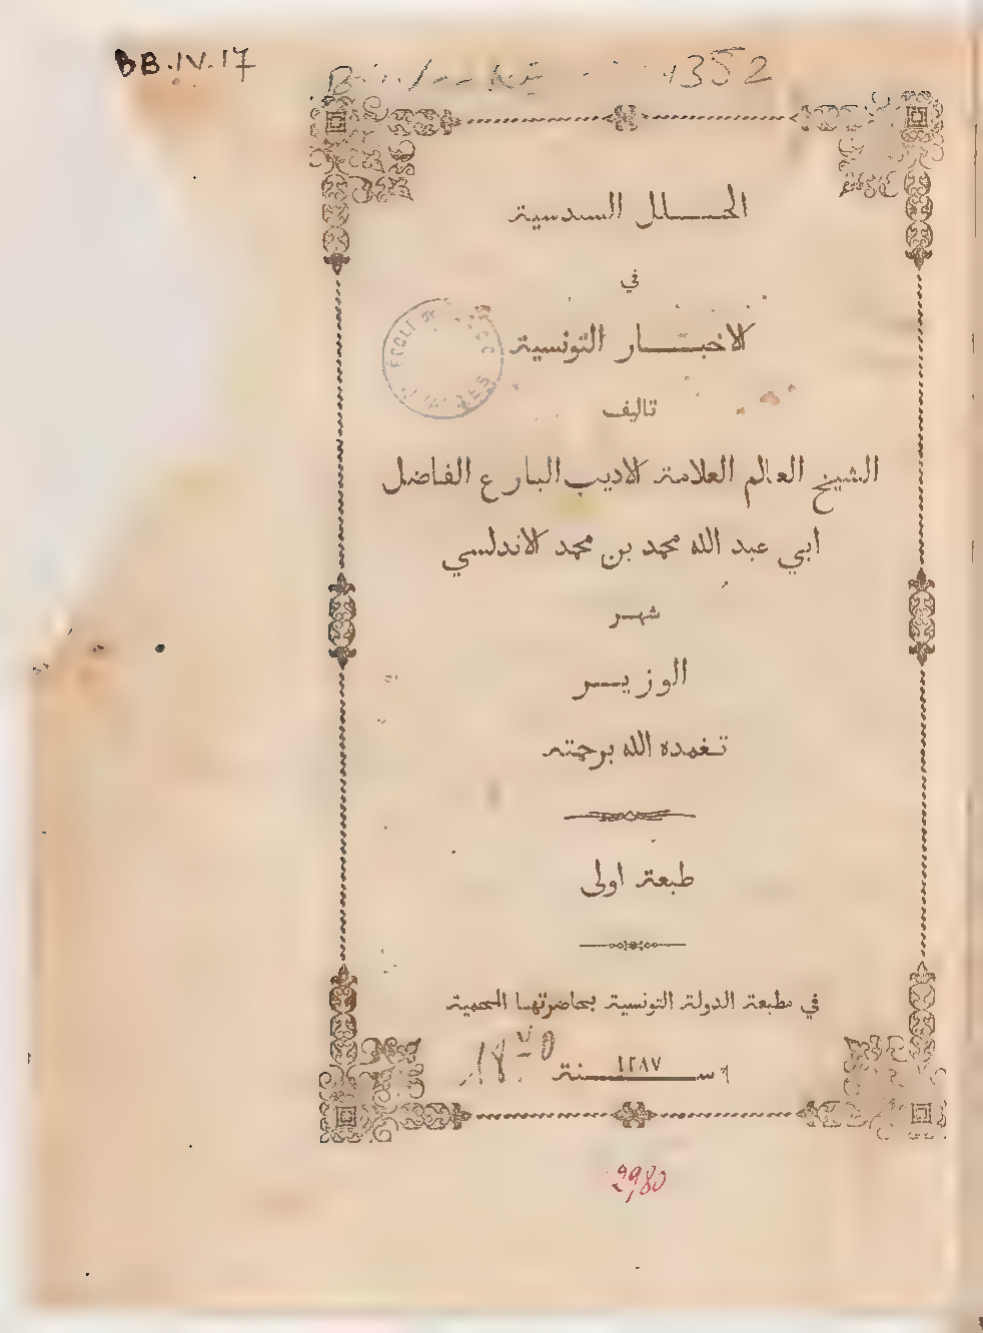 BB.IV.17
1352
الحلل السندسية
في
الاخبار التونسية
تاليف
الشيخ العالم العلامة الاديب البارع الفاضل
ابي عبد الله محمد بن محمد الاندلسي
شهر
الوزير
تغمده الله برحمته
طبعة اولى
في مطبعة الدولة التونسية بحاضرتها المحمية
سنة ١٢٨٧
2980